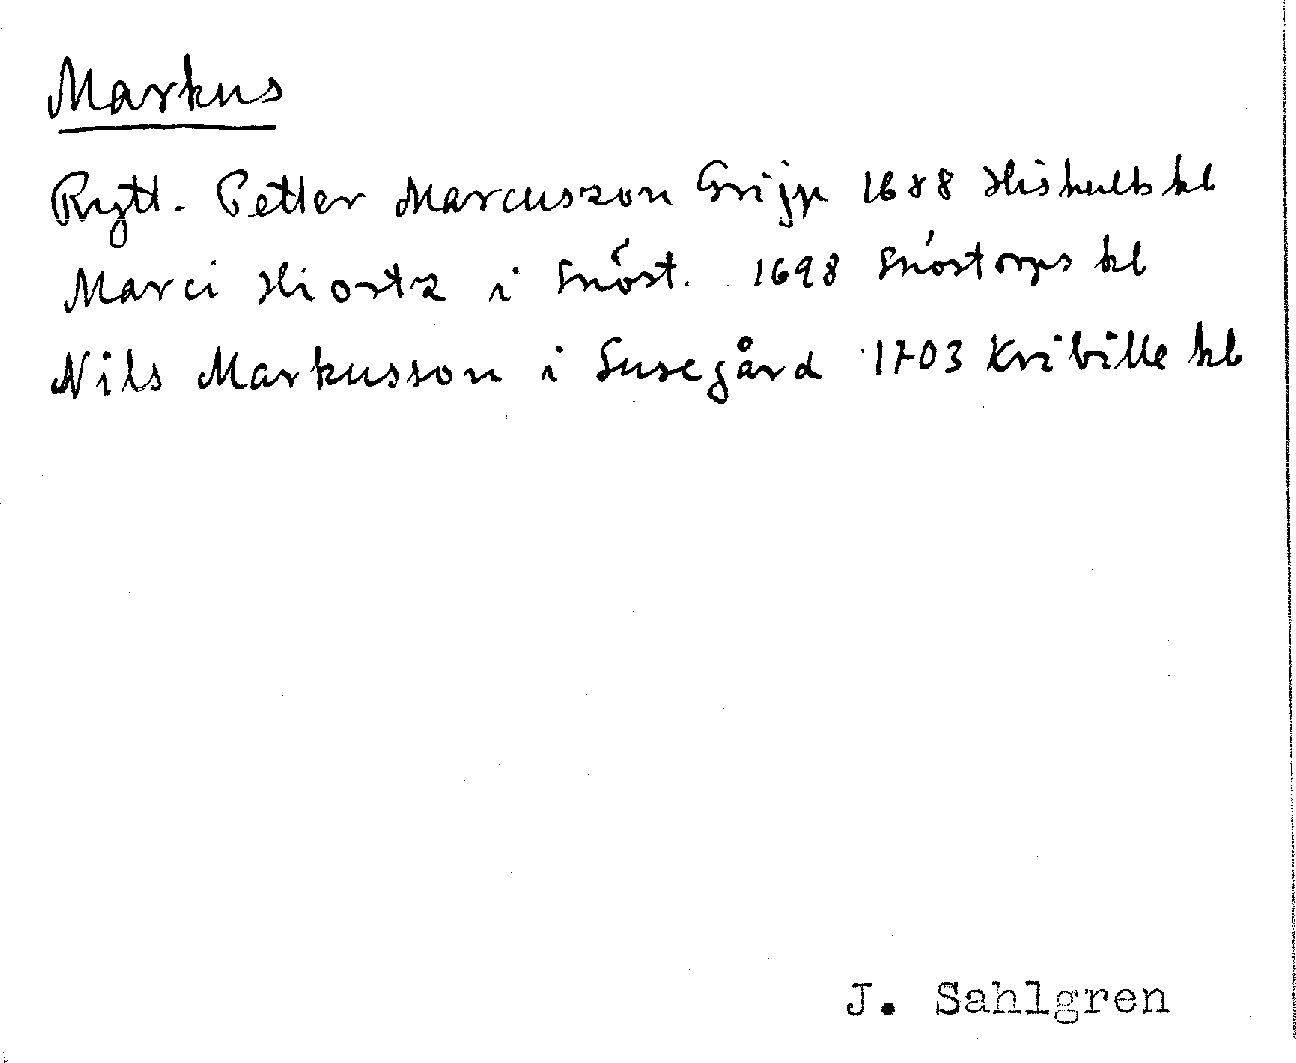 Markus
Rytt. Petter Marcuszon Gripp 1688 Hishults kb
Marci Hiortz i Snöst. 1698 Snöstorps kb
Nils Markusson i Susegård 1703 Kvibille kb
J. Sahlgren